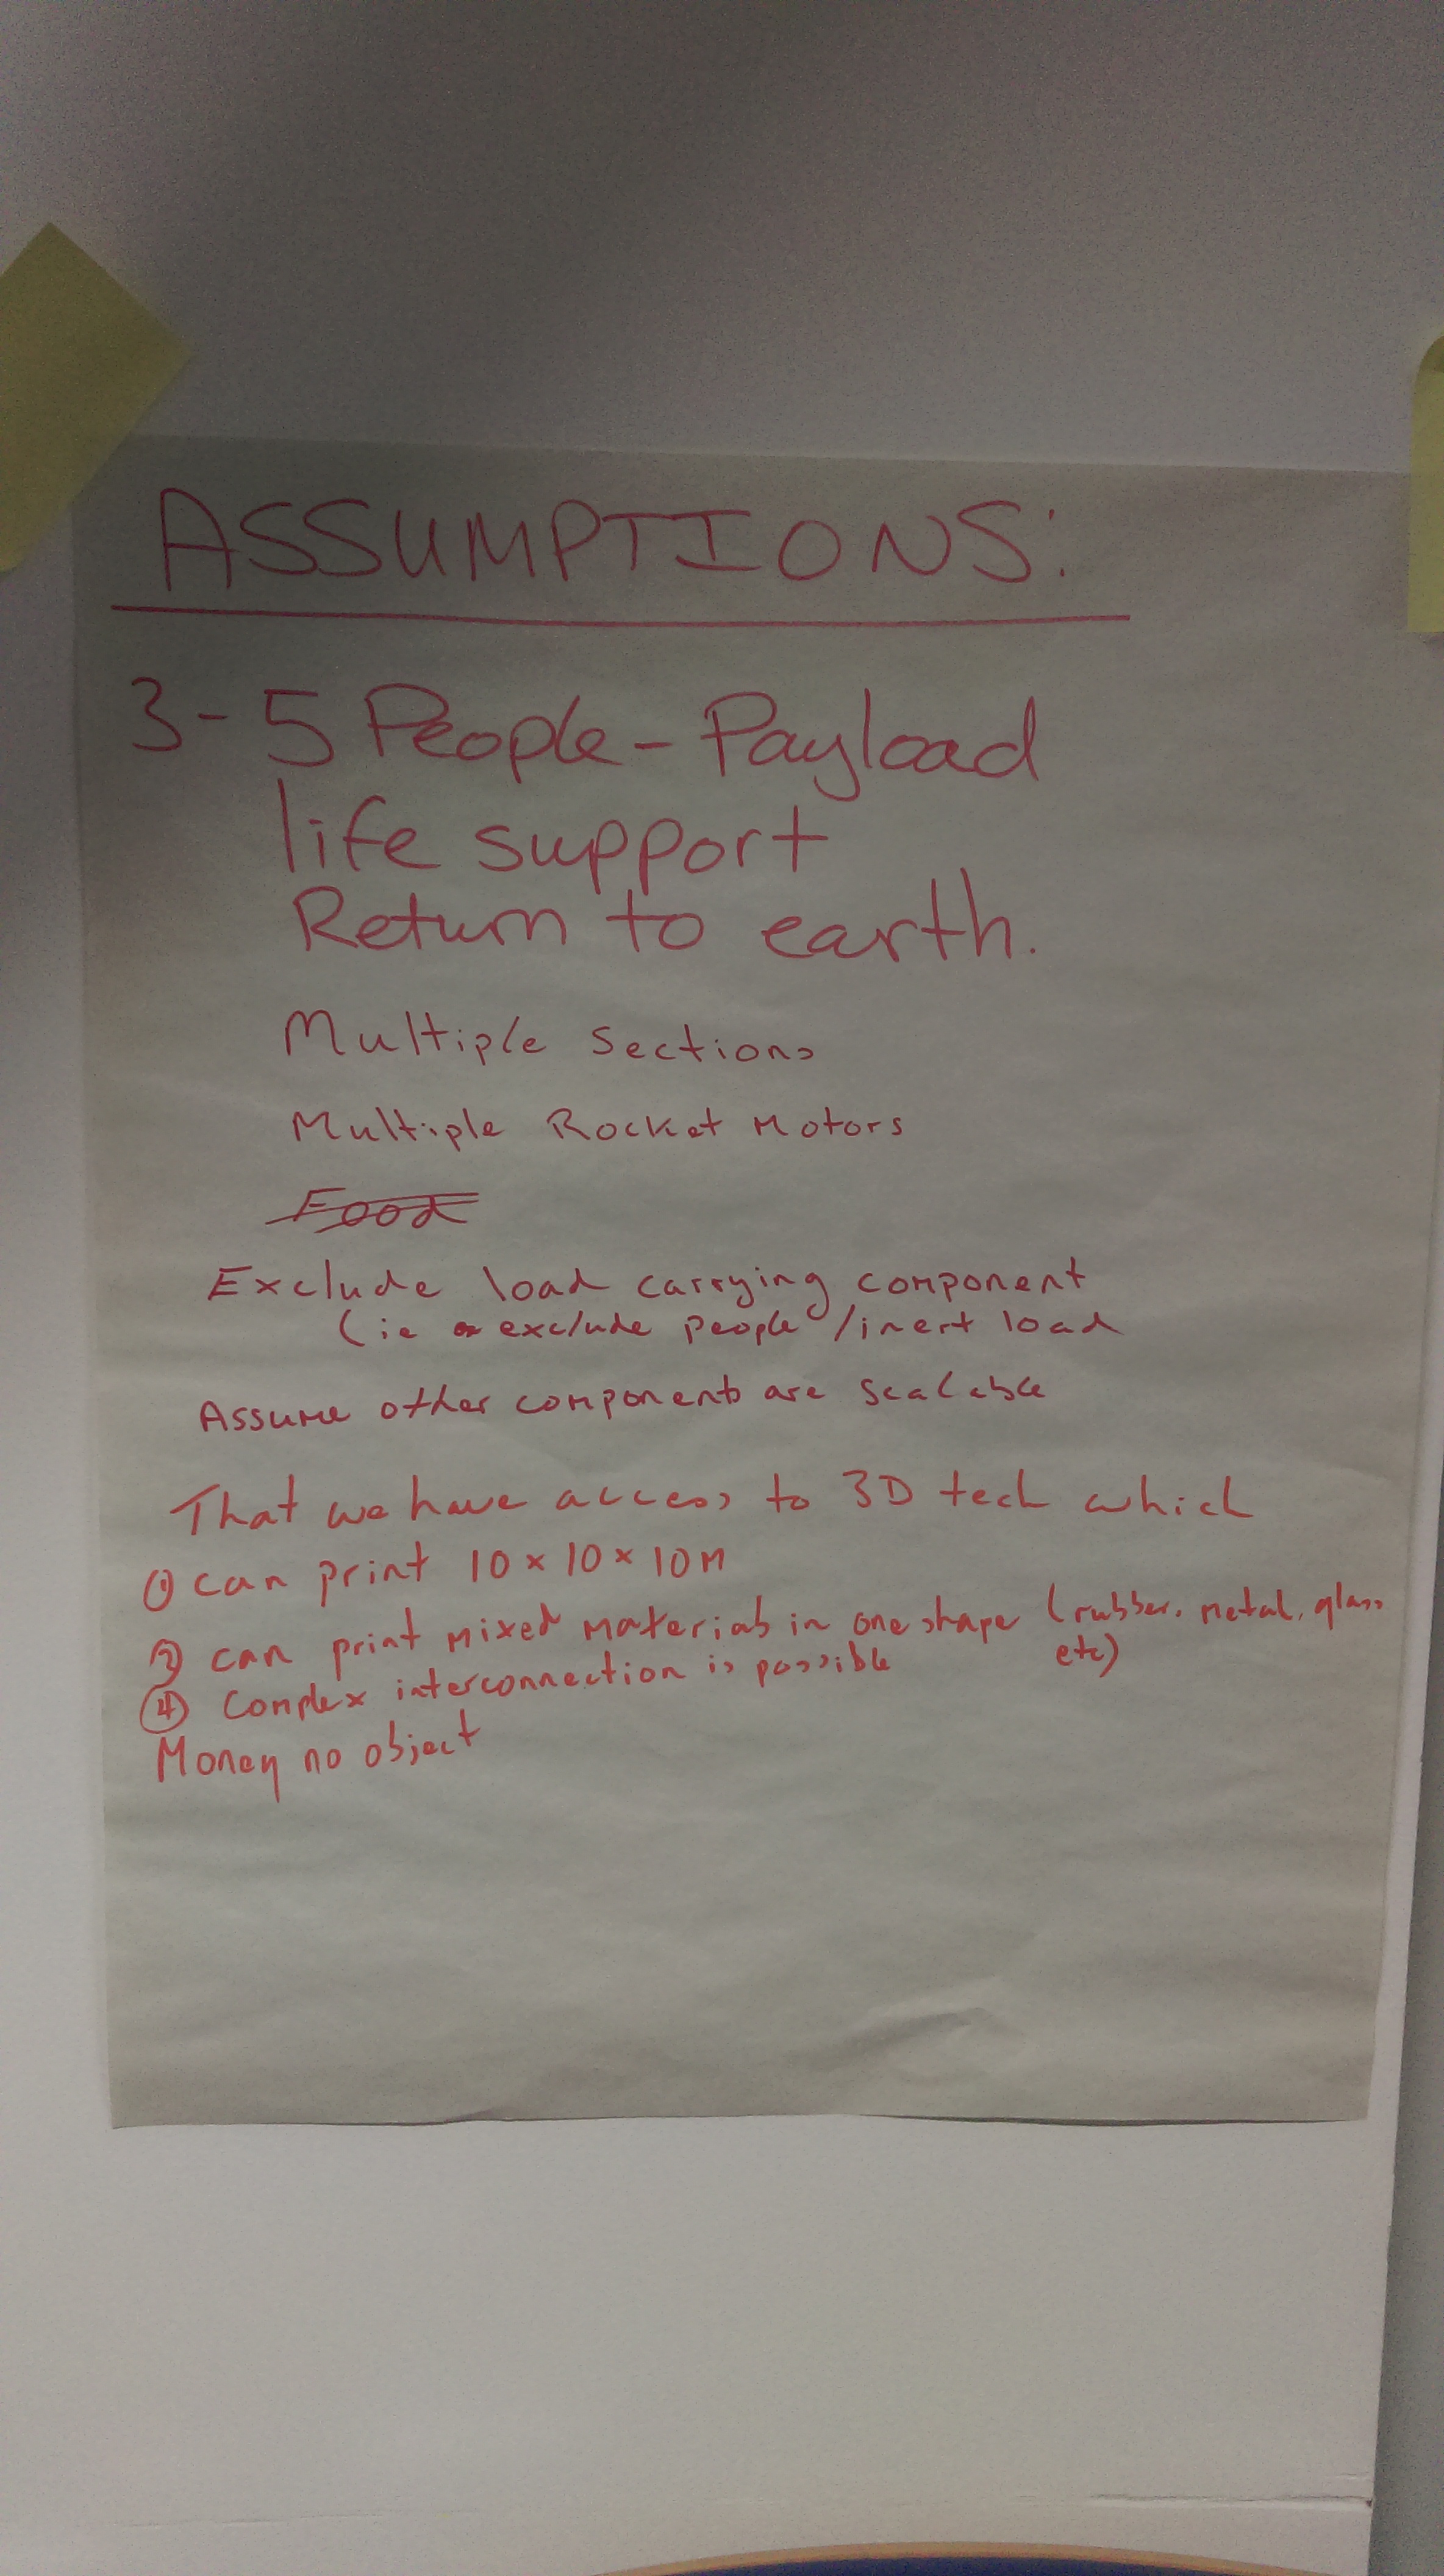 ASSUMPTIONS:
3-5 People - Payload
life support
Return to earth.
Multiple Sections
Multiple Rocket Motors
Food
Exclude load carrying component
(ie exclude people /inert load
Assume other components are scalable
That we have access to 3D tech which
① can print 10 x 10 x 10M
can print mixed materials in one shape (rubber, metal, glass
etc)
④ Complex interconnection is possible
Money no object